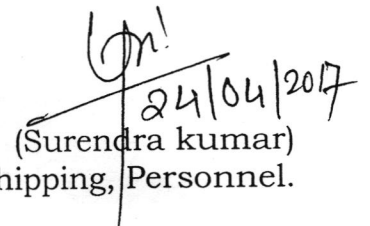 24/04/2017
(Surendra kumar)
hipping, Personnel.